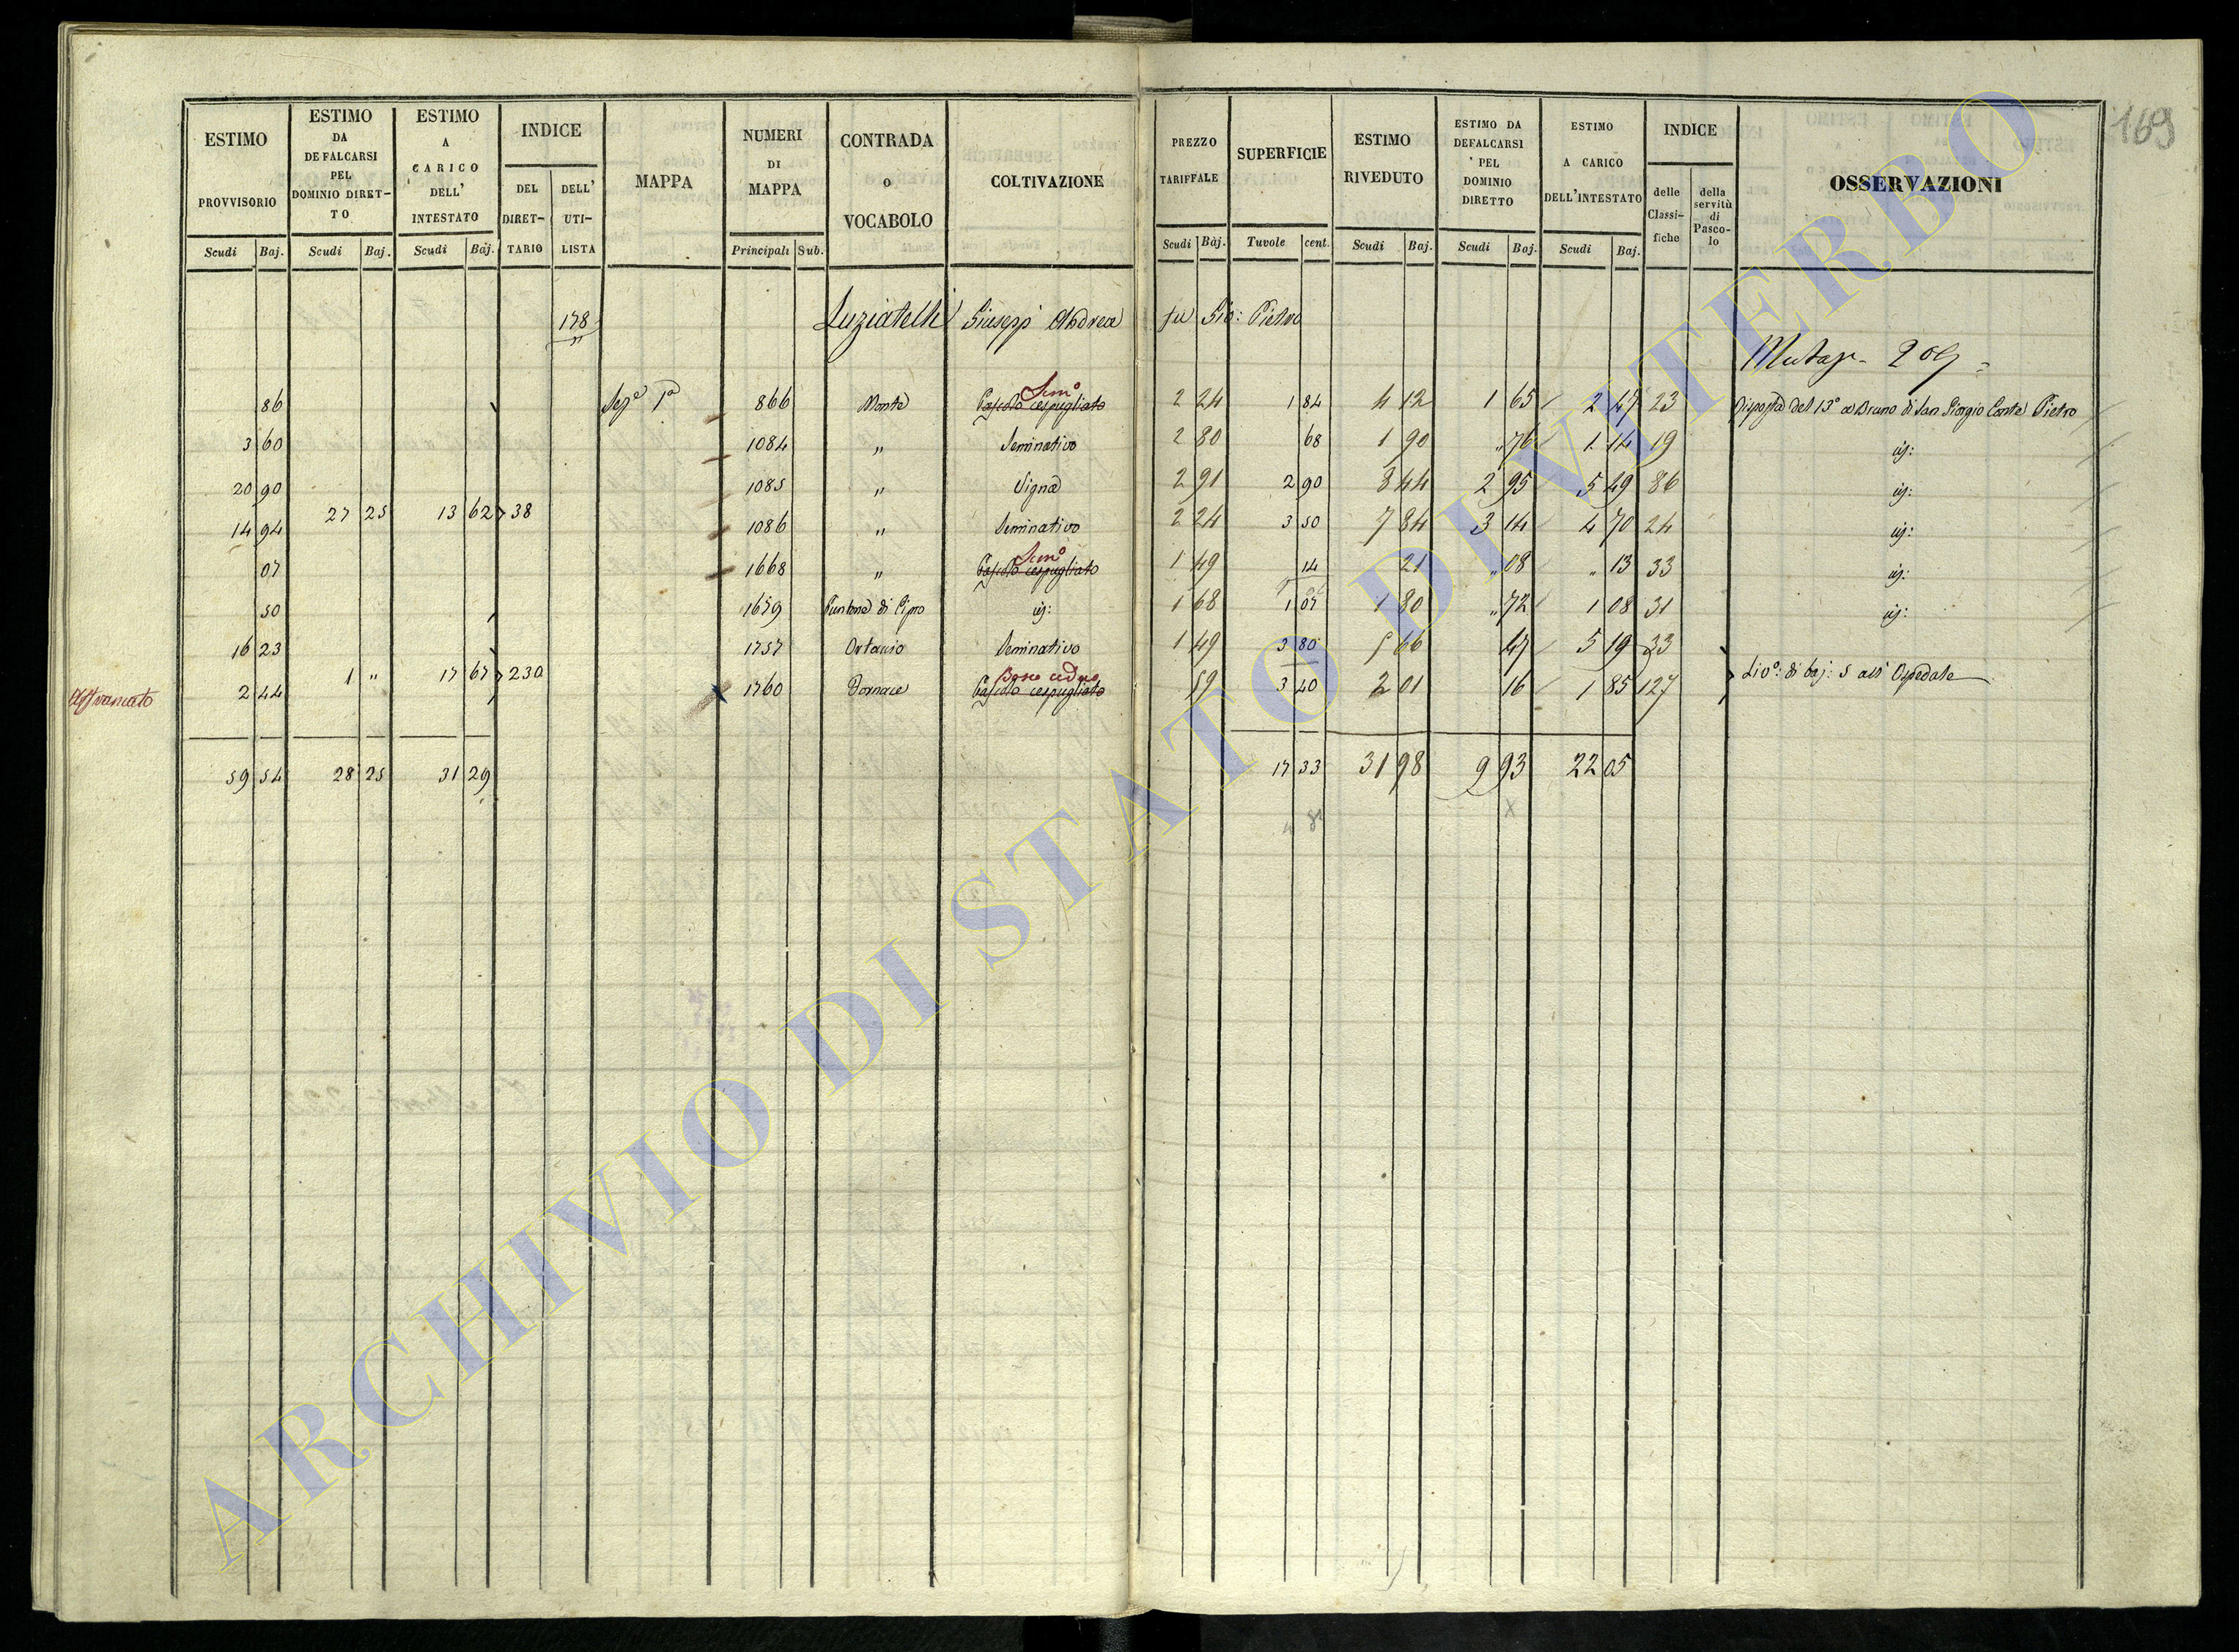 169
ESTIMO PROVVISORIO Scudi Baj. | ESTIMO DA DEFALCARSI PEL DOMINIO DIRETTO Scudi Baj. | ESTIMO A CARICO DELL' INTESTATO Scudi Baj. | INDICE DEL DIRETTARIO DELL' UTILISTA | MAPPA | NUMERI DI MAPPA Principali Sub. | CONTRADA o VOCABOLO | COLTIVAZIONE | PREZZO TARIFFALE Scudi Baj. | SUPERFICIE Tuvole cent. | ESTIMO RIVEDUTO Scudi Baj. | ESTIMO DA DEFALCARSI PEL DOMINIO DIRETTO Scudi Baj. | ESTIMO A CARICO DELL'INTESTATO Scudi Baj. | INDICE delle Classifiche della servitù di Pascolo | OSSERVAZIONI
178 Luziatelli Giuseppe Andrea fu Gio: Pietro
209
86 Sez.e 1a 866 Monte Pascolo cespugliato Sem.o 2 24 1 84 4 12 1 65 2 47 23 Risposta del 13° a Bruno di San Giorgio Conte Pietro
3 60 1084 " Seminativo 2 80 68 1 90 " 76 1 14 19 id:
20 90 1085 " Vigna 2 91 2 90 8 44 2 95 5 49 86 id:
27 25 13 62 38
14 94 1086 " Seminativo 2 24 3 50 7 84 3 14 4 70 24 id:
07 1668 " Pascolo cespugliato Sem.o 1 49 14 21 " 08 " 13 33 id:
50 1659 Puntone di Cipro id: 1 68 1 07 1 80 " 72 1 08 31 id:
16 23 1757 Seminativo 1 49 3 80 5 66 47 5 19 33
1 " 17 67 230
Affrancato 2 44 1760 Fornace Pascolo cespugliato Bosco ceduo 59 3 40 2 01 16 1 85 127 di baj: 5 all' Ospedale
59 54 28 25 31 29 17 33 31 98 9 93 22 05
ARCHIVIO DI STATO DI VITERBO